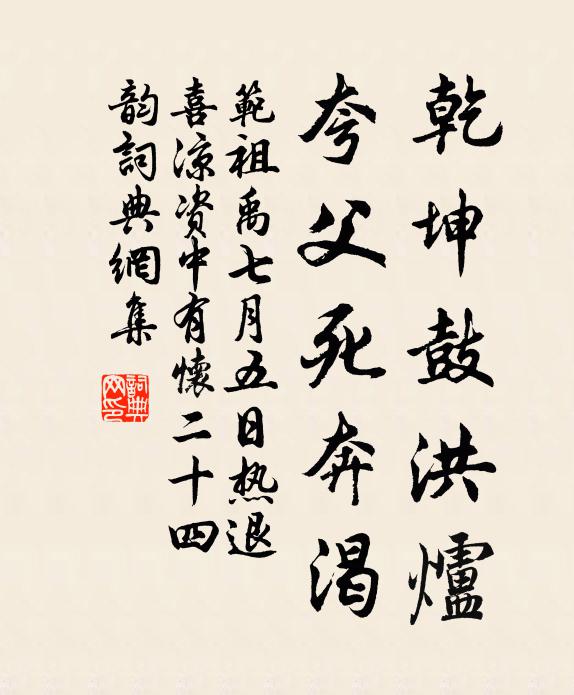 乾坤鼓洪爐
夸父死奔渴
範祖禹七月五日热退
喜凉资中有懷二十四
韵詞典網集
詞典网印